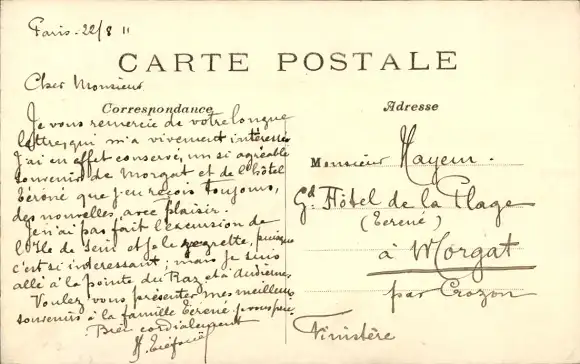 Paris - 22/8 11
CARTE POSTALE
Cher Monsieur
Correspondance
Je vous remercie de votre longue
lettre qui m'a vivement intéressé
J'ai en effet conservé un si agréable
souvenir de Morgat et de l'hôtel
que j'en reçois toujours,
des nouvelles, avec plaisir.
Je n'ai pas fait l'excursion de
l'Ile de Sein et je le regrette, puisque
c'est si intéressant ; mais je suis
allé à la pointe du Raz et à Audierne
Voulez vous présenter mes meilleurs
souvenirs à la famille je vous prie
Bien cordialement
Adresse
Monsieur Hayem.
Gd. Hôtel de la Plage
à Morgat
par Crozon
Finistère